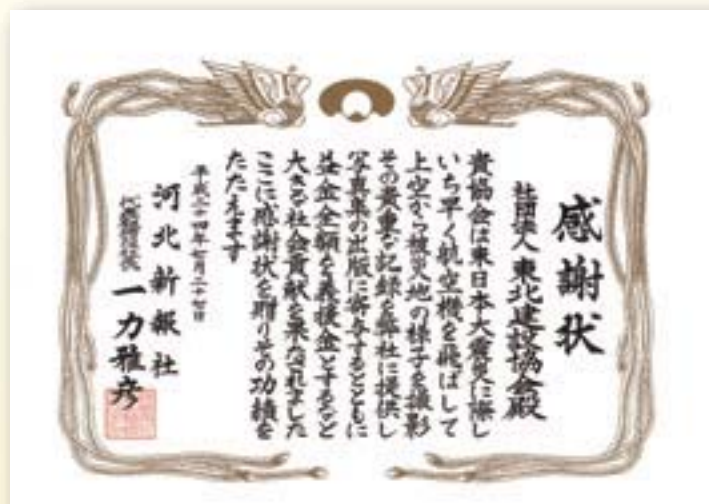 感謝状
社団法人 東北建設協会殿
貴協会は東日本大震災に際し
いち早く航空機を飛ばして
上空から被災地の様子を撮影
その貴重な記録を弊社に提供し
写真集の出版に寄与するとともに
益金全額を義援金とするなど
大きな社会貢献を果たされました
ここに感謝状を贈りその功績を
たたえます
平成二十四年七月二十七日
河北新報社
代表取締役社長 一力雅彦